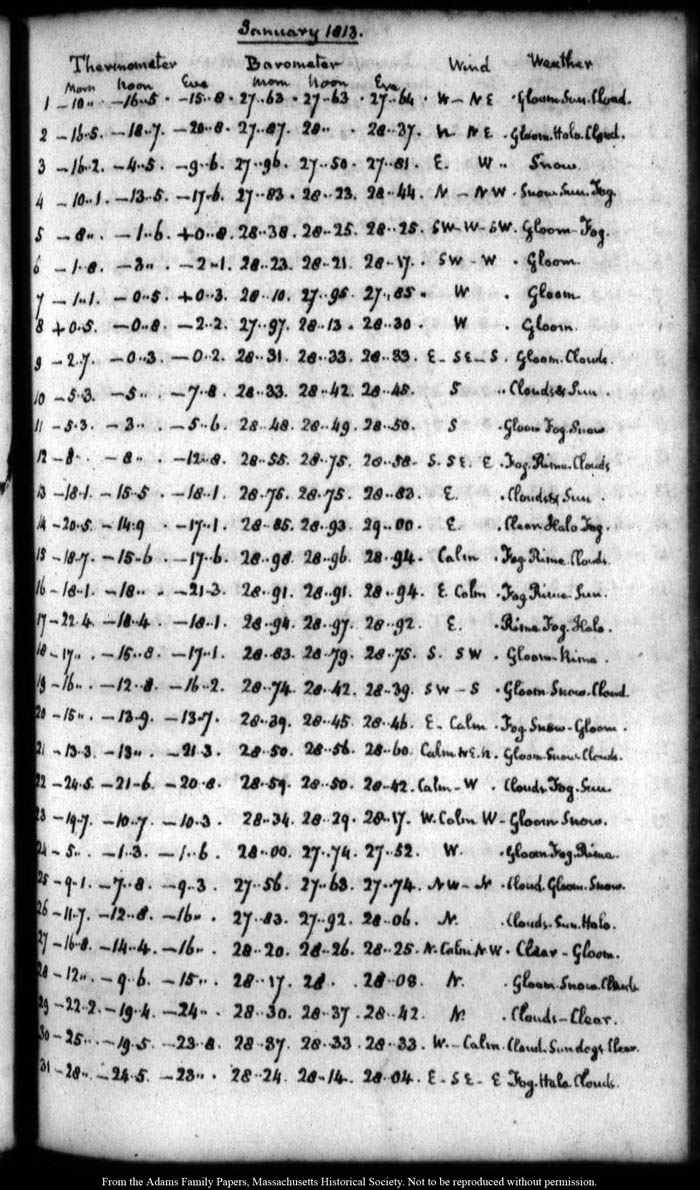 January 1813.
Thermometer Barometer Wind Weather
Morn Noon Eve Morn Noon Eve
1 -10.. -16..5 -15..8 27..63 27..63 27..64 W-NE Gloom.Sun.Cloud.
2 -16..5. -18..7. -20..8. 27..87. 28.. 28..37. N NE Gloom.Halo.Cloud.
3 -16..2. -4..5 -9..6. 27..96. 27..50 27..81. E. W.. Snow.
4 -10..1. -13..5. -17..6. 27..83. 28..23. 28..44. N-NW Snow.Sun.Fog.
5 -8.. -1..6. +0..8. 28..38. 28..25. 28..25. SW-W-SW. Gloom-Fog.
6 -1..8. -3.. -2..1. 28..23. 28..21. 28..17. SW-W Gloom
7 -1..1. -0..5 +0..3. 28..10. 27..95 27..85 W Gloom
8 +0..5. -0..8 -2..2. 27..97. 28..13. 28..30. W. Gloom.
9 -2..7. -0..3. -0..2. 28..31. 28..33. 28..33. E-SE-S Gloom.Clouds.
10 -5..3. -5.. -7..8 28..33. 28..42. 28..45. S Clouds & Sun
11 -5..3 -3.. -5..6. 28..48. 28..49. 28..50. S Gloom Fog.Snow
12 -8.. -8.. -12..8. 28..55. 28..75. 28..58. S.SE.E Fog.Rime.Clouds
13 -18..1. -15..5 -18..1. 28..75. 28..75. 28..83. E. Clouds & Sun
14 -20..5. -14..9 -17..1. 28..85. 28..93. 29..00. E. Clear.Halo Fog.
15 -18..7. -15..6 -17..6. 28..98. 28..96. 28..94. Calm Fog.Rime.Clouds.
16 -18..1. -18.. -21..3. 28..91. 28..91. 28..94. E Calm Fog.Rime.Sun.
17 -22..4. -18..4. -18..1. 28..94. 28..97. 28..92. E. Rime.Fog.Halo.
18 -17.. -15..8. -17..1. 28..83. 28..79. 28..75. S. SW Gloom-Rime
19 -16.. -12..8. -16..2. 28..74. 28..42. 28..39. SW-S Gloom.Snow.Cloud
20 -15.. -13..9. -13..7. 28..39. 28..45. 28..46. E-Calm Fog.Snow-Gloom.
21 -13..3. -13.. -21..3. 28..50. 28..56. 28..60. Calm & E.N. Gloom Snow.Clouds.
22 -24..5. -21..6. -20..8. 28..59. 28..50. 28..42. Calm-W Clouds.Fog.Sun.
23 -19..7. -10..7. -10..3. 28..34. 28..29. 28..17. W.Calm W-Gloom Snow.
24 -5.. -1..3. -1..6 28..00. 27..74. 27..52. W. Gloom.Fog.Rime.
25 -9..1. -7..8. -9..3 27..56. 27..63. 27..74. NW-N Cloud.Gloom.Snow.
26 -11..7. -12..8. -16.. 27..83. 27..92. 28..06. N. Clouds.Sun.Halo.
27 -16..8. -14..4. -16.. 28..20. 28..26. 28..25. N.Calm.NW Clear-Gloom.
28 -12.. -9..6. -15.. 28..17. 28.. 28..08. N. Gloom.Snow.Clouds
29 -22..2. -19..4. -24.. 28..30. 28..37. 28..42. N. Clouds-Clear.
30 -25.. -19..5. -23..8. 28..37. 28..33. 28..33. W-Calm.Cloud.Sundogs Clear.
31 -28.. -24..5. -23.. 28..24. 28..14. 28..04. E-SE-E Fog.Halo.Clouds.
From the Adams Family Papers, Massachusetts Historical Society. Not to be reproduced without permission.